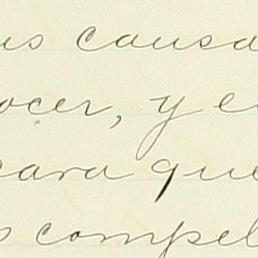 us causa
ocer, y e
cara que
s compel